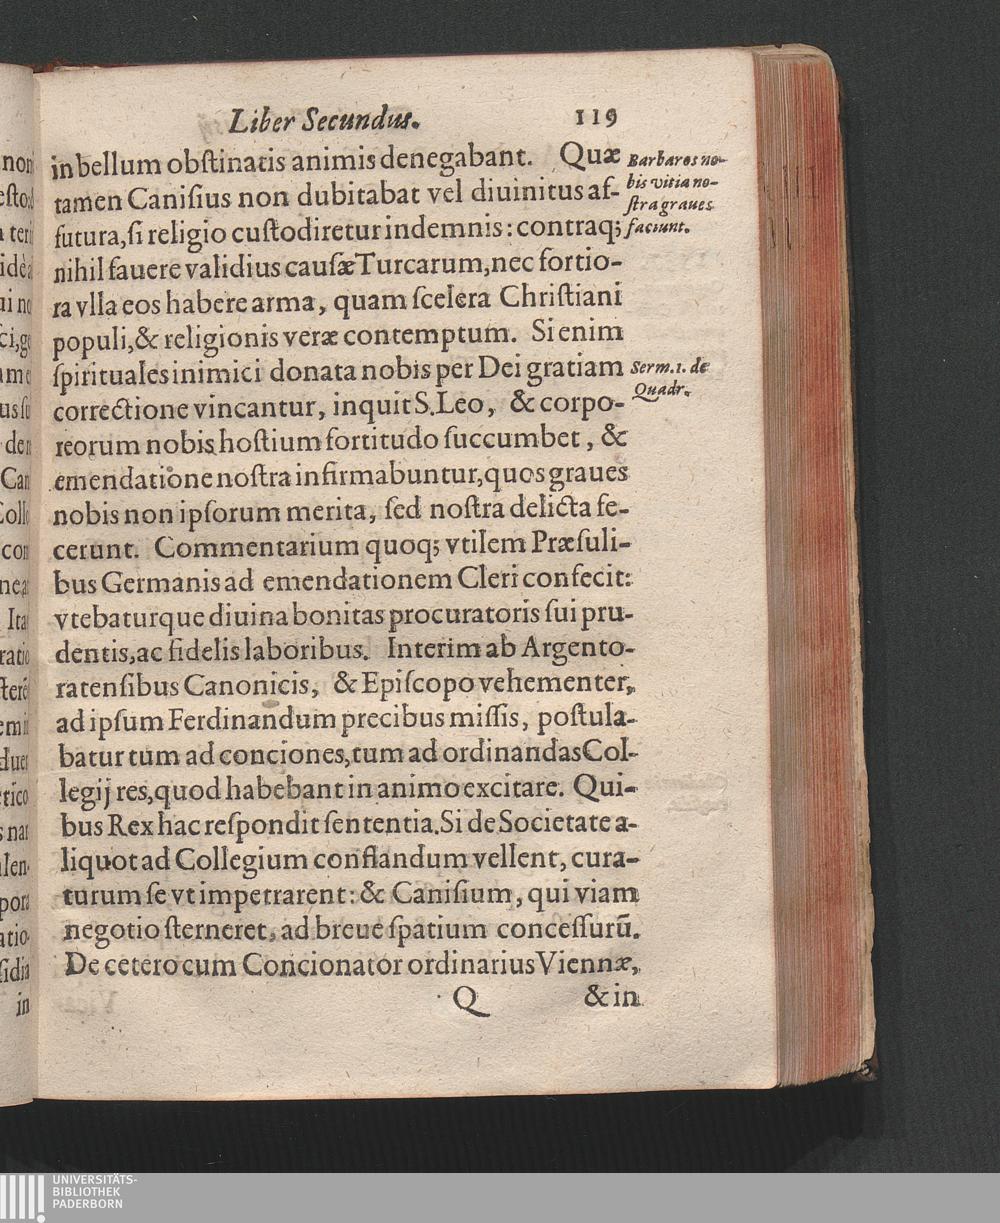 Liber Secundus. 119
in bellum obstinatis animis denegabant. Quæ
tamen Canisius non dubitabat vel diuinitus af-
futura, si religio custodiretur indemnis: contraq;
nihil fauere validius causæ Turcarum, nec fortio-
ra vlla eos habere arma, quam scelera Christiani
populi, & religionis veræ contemptum. Si enim
spirituales inimici donata nobis per Dei gratiam
correctione vincantur, inquit S. Leo, & corpo-
reorum nobis hostium fortitudo succumbet, &
emendatione nostra infirmabuntur, quos graues
nobis non ipsorum merita, sed nostra delicta fe-
cerunt. Commentarium quoq; vtilem Præsuli-
bus Germanis ad emendationem Cleri confecit:
vtebaturque diuina bonitas procuratoris sui pru-
dentis, ac fidelis laboribus. Interim ab Argento-
ratensibus Canonicis, & Episcopo vehementer,
ad ipsum Ferdinandum precibus missis, postula-
batur tum ad conciones, tum ad ordinandas Col-
legij res, quod habebant in animo excitare. Qui-
bus Rex hac respondit sententia. Si de Societate a-
liquot ad Collegium conflandum vellent, cura-
turum se vt impetrarent: & Canisium, qui viam
negotio sterneret, ad breue spatium concessurũ.
De cetero cum Concionator ordinarius Viennæ,
Q & in
Barbaros no-
bis vitia no-
stra graues
faciunt.
Serm. 1. de
Quadr.
UNIVERSITÄTS-
BIBLIOTHEK
PADERBORN